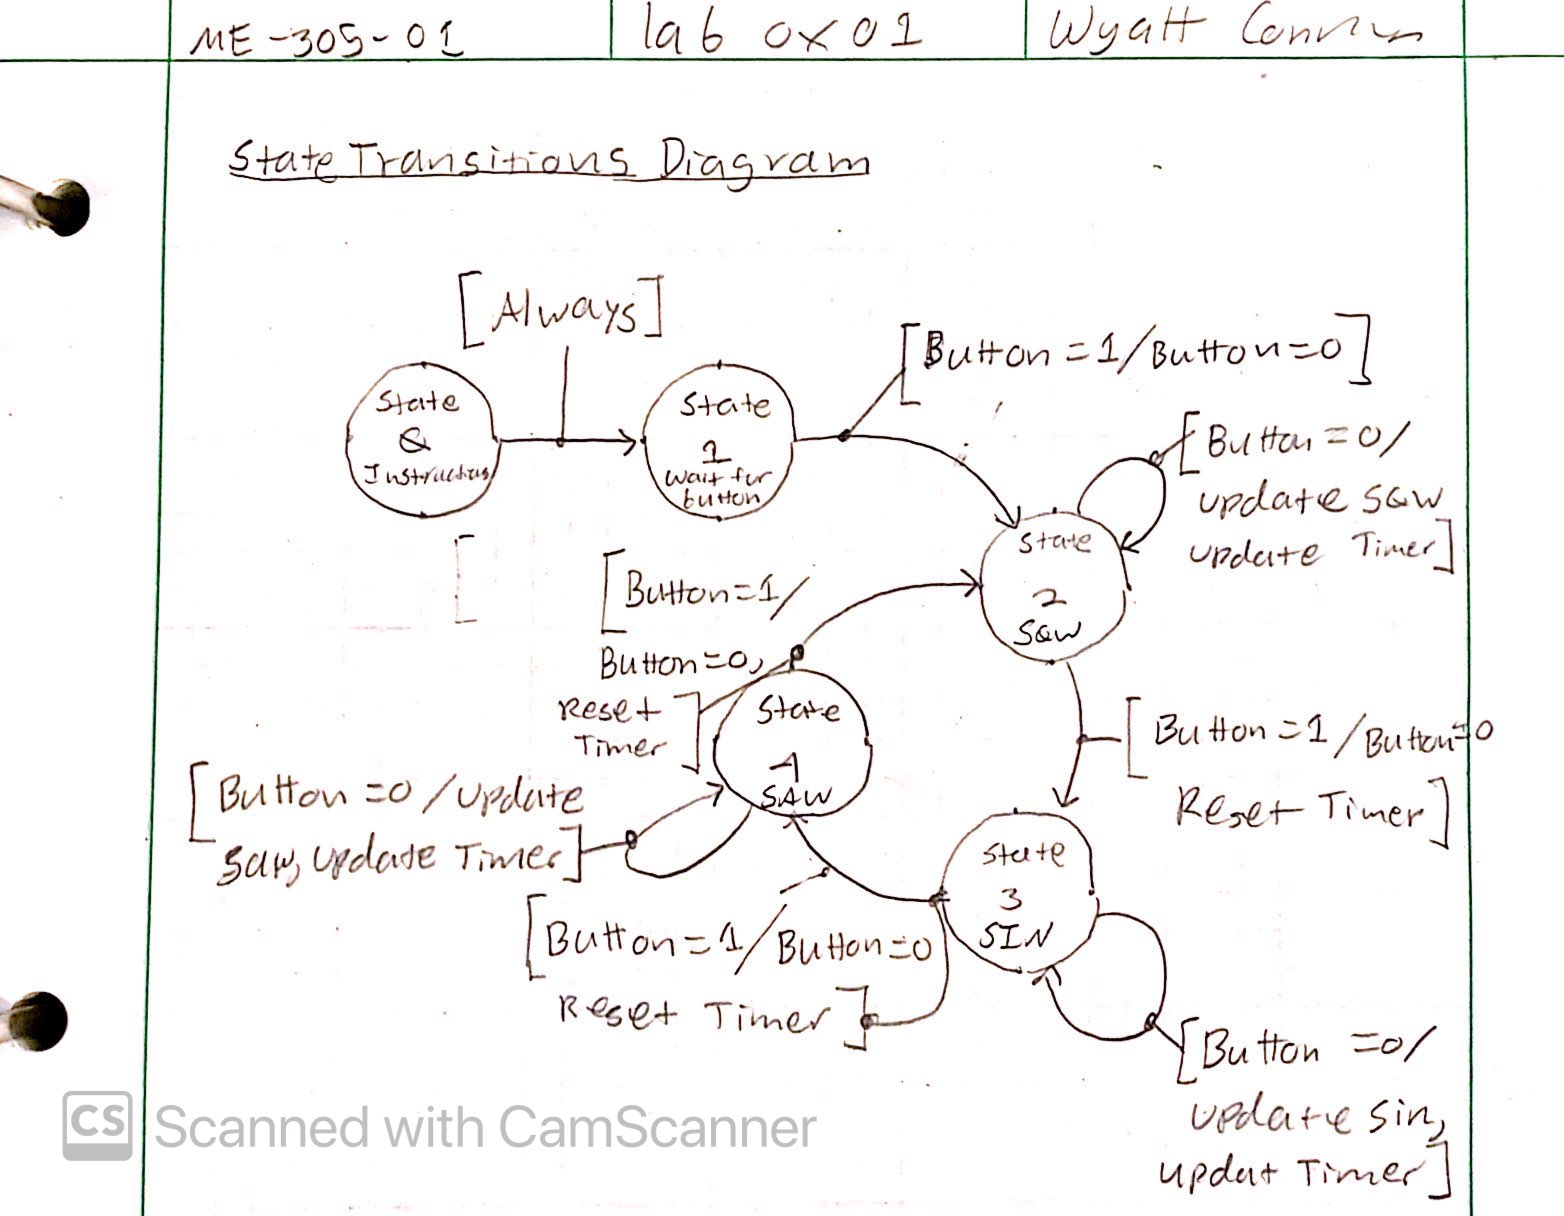 ME-305-01
lab 0x01
Wyatt
State Transitions Diagram
[Always]
[Button = 1/Button=0]
State
0
State
1
Wait for
button
[Button = 0/
update SQW
update Timer]
State
2
SQW
[Button=1/
Button=0,
Reset
Timer]
State
4
SAW
[Button = 1/Button=0
Reset Timer]
[Button =0/update
Saw, update Timer]
State
3
SIN
[Button = 1/Button=0
Reset Timer]
[Button =0/
update sin,
updat Timer]
CS Scanned with CamScanner